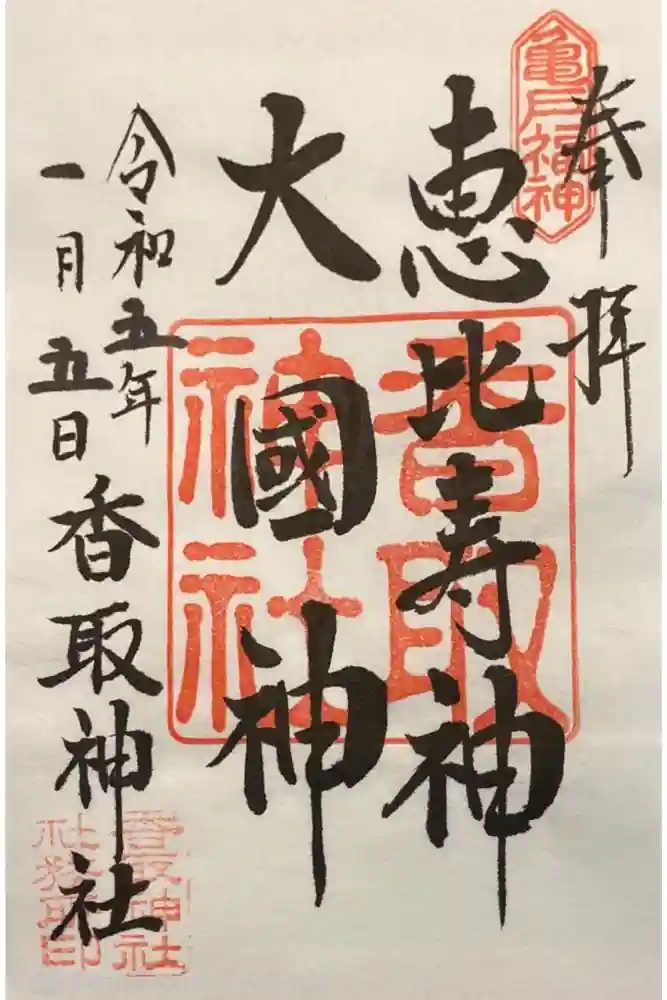 奉拝
亀戸福神
恵比寿神
大國神
香取神社
令和五年
一月五日
香取神社
香取神社
社務所印